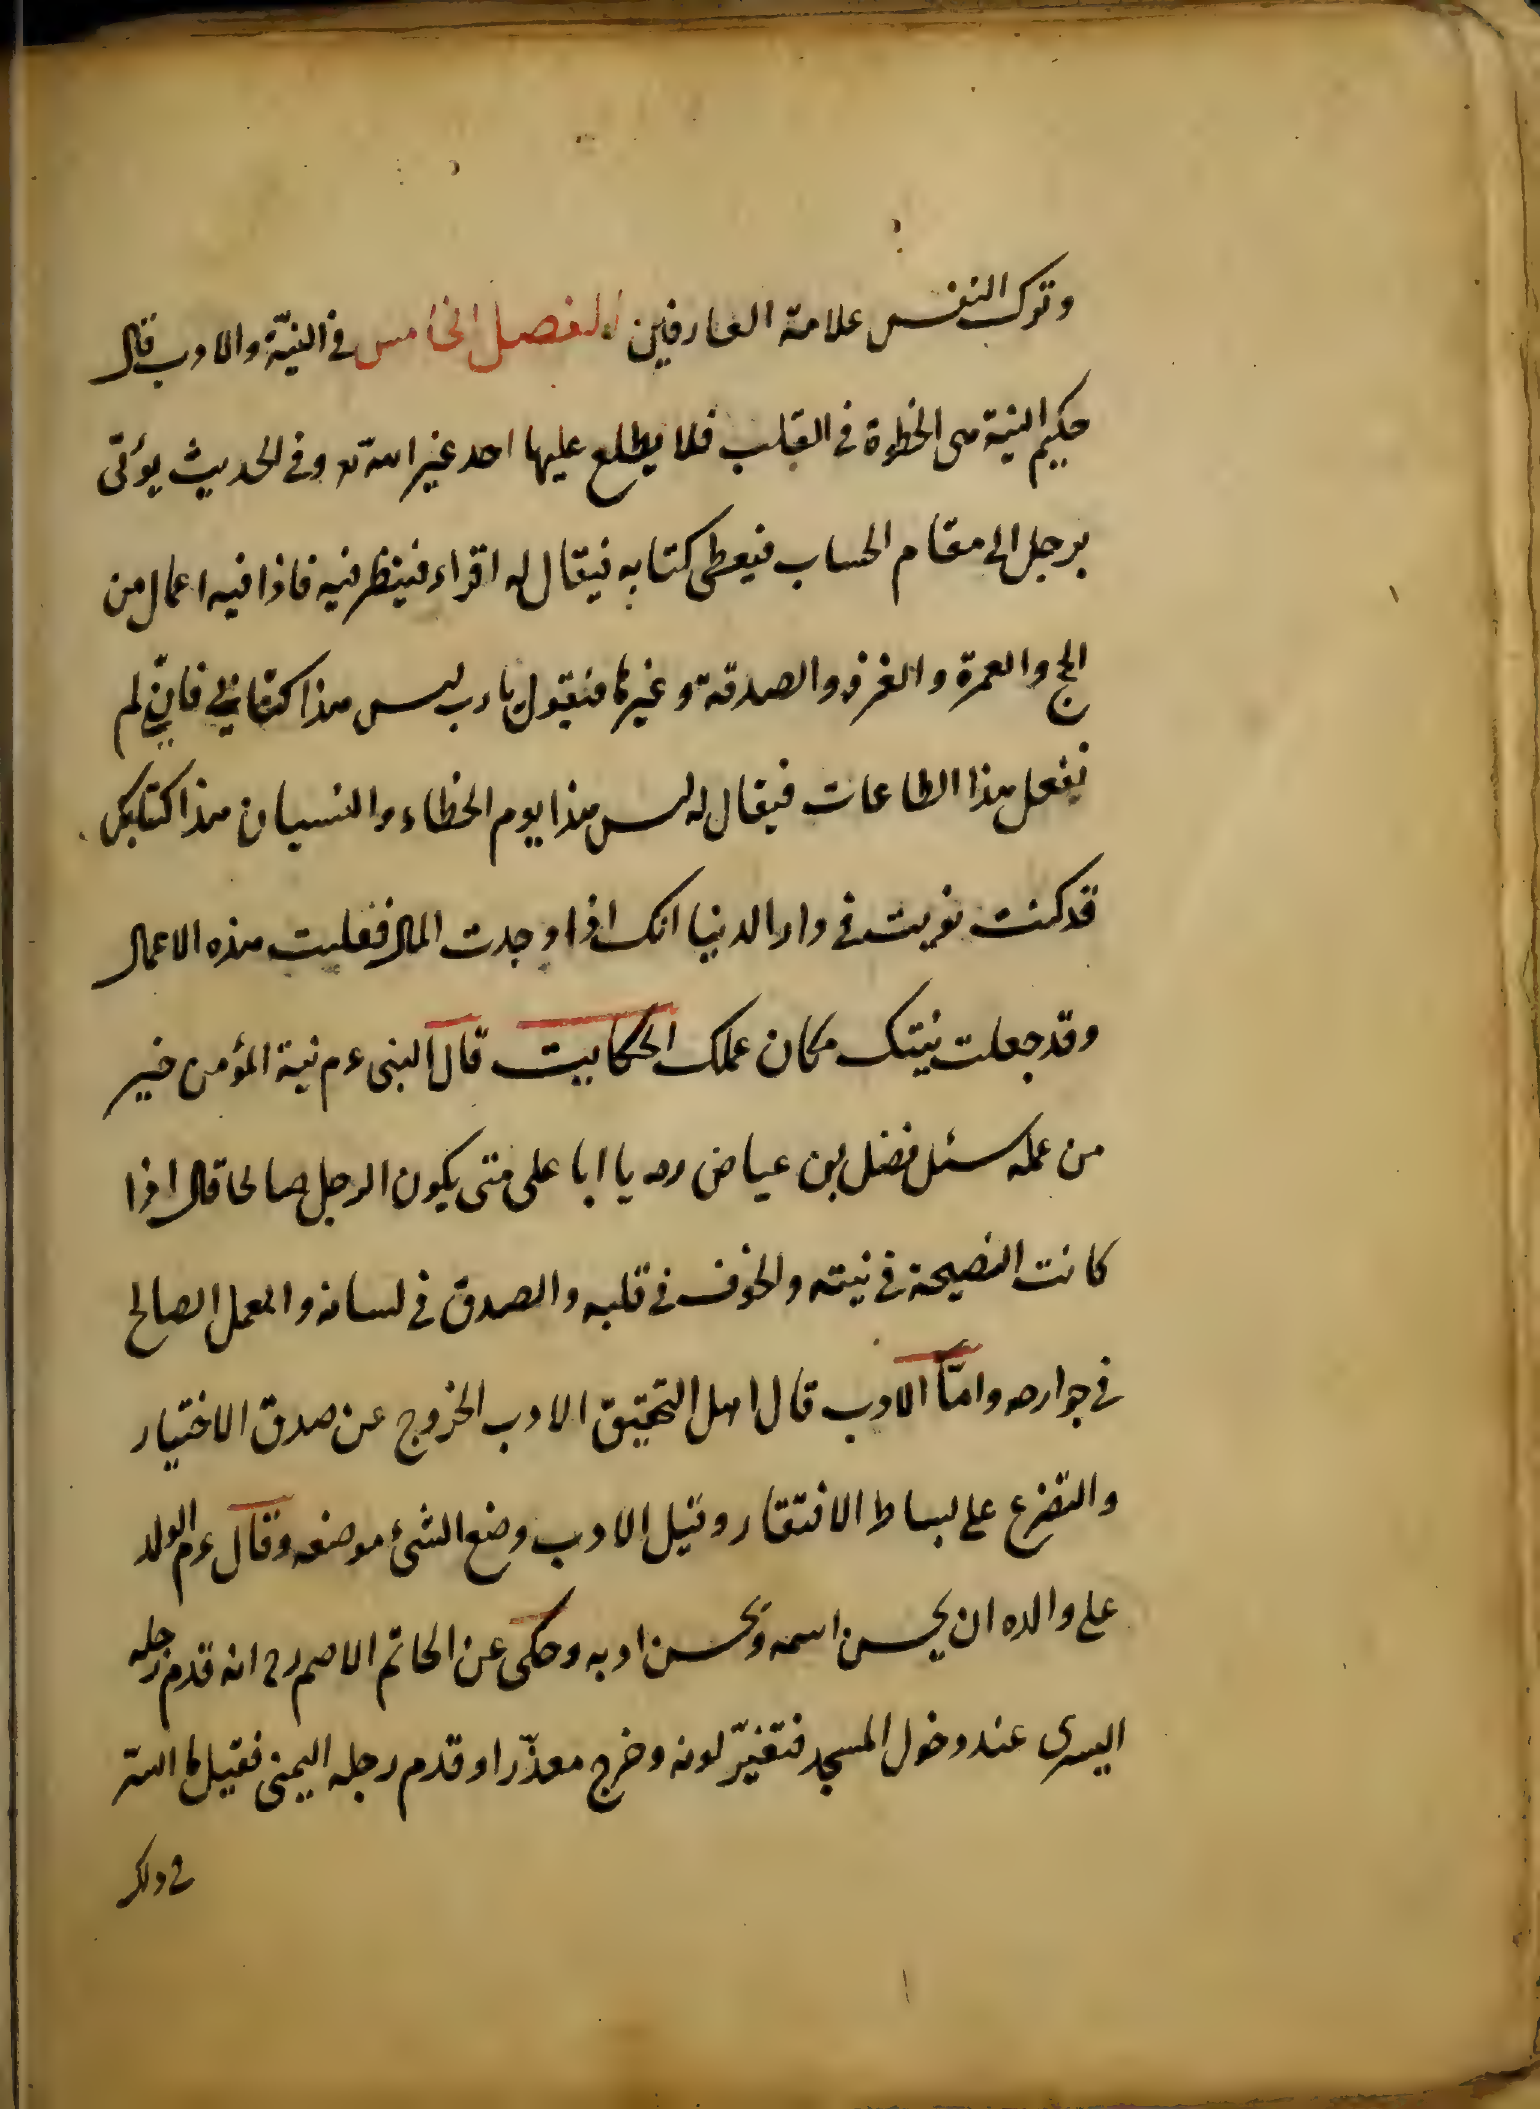 وترك النفس علامة العارفين الفصل الخامس في النيّة والادب قال
حكيم النية هى الخطوة في القلب فلا يطلع عليها احد غير الله تع وفي الحديث يؤتى
برجل الى مقام الحساب فيعطى كتابه فيقال له اقراء فينظر فيه فاذا فيه اعمال من
الحج والعمرة والغزو والصدقة وغيرها فيقول يا رب ليس هذا كتابي فاني لم
نفعل هذا الطاعات فيقال له ليس هذا يوم الخطاء والنسيان هذا كتابك
قد كنت نويت في دار الدنيا انك اذا وجدت المال ففعلت هذه الاعمال
وقد جعلت نيتك مكان عملك الحكايت قال النبى ءم نية المؤمن خير
من عمله سئل فضل بن عياض ره يا ابا على متى يكون الرجل صالحا قال اذا
كانت النصيحة في نيته والخوف في قلبه والصدق في لسانه والعمل الصالح
في جوارحه وامّا الادب قال اهل التحقيق الادب الخروج عن صدق الاختيار
والتضرع على بساط الافتقار وقيل الادب وضع الشئ موضعه وقال ءم الولد
على والده ان يحسن اسمه ويحسن ادبه وحكى عن الحاتم الاصم رح انه قدم رجله
اليسرى عند دخول المسجد فتغيّر لونه وخرج معذّرا وقدم رجله اليمنى فقيل ما السّر
في ذلك